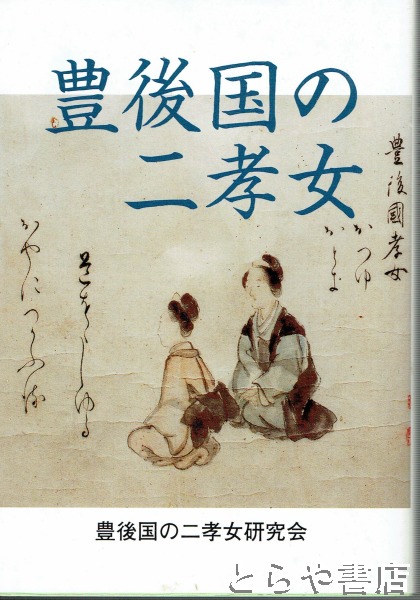 豊後国の
二孝女
豊後國孝女
かつゆ
かとよ
豊後国の二孝女研究会
とらや書店